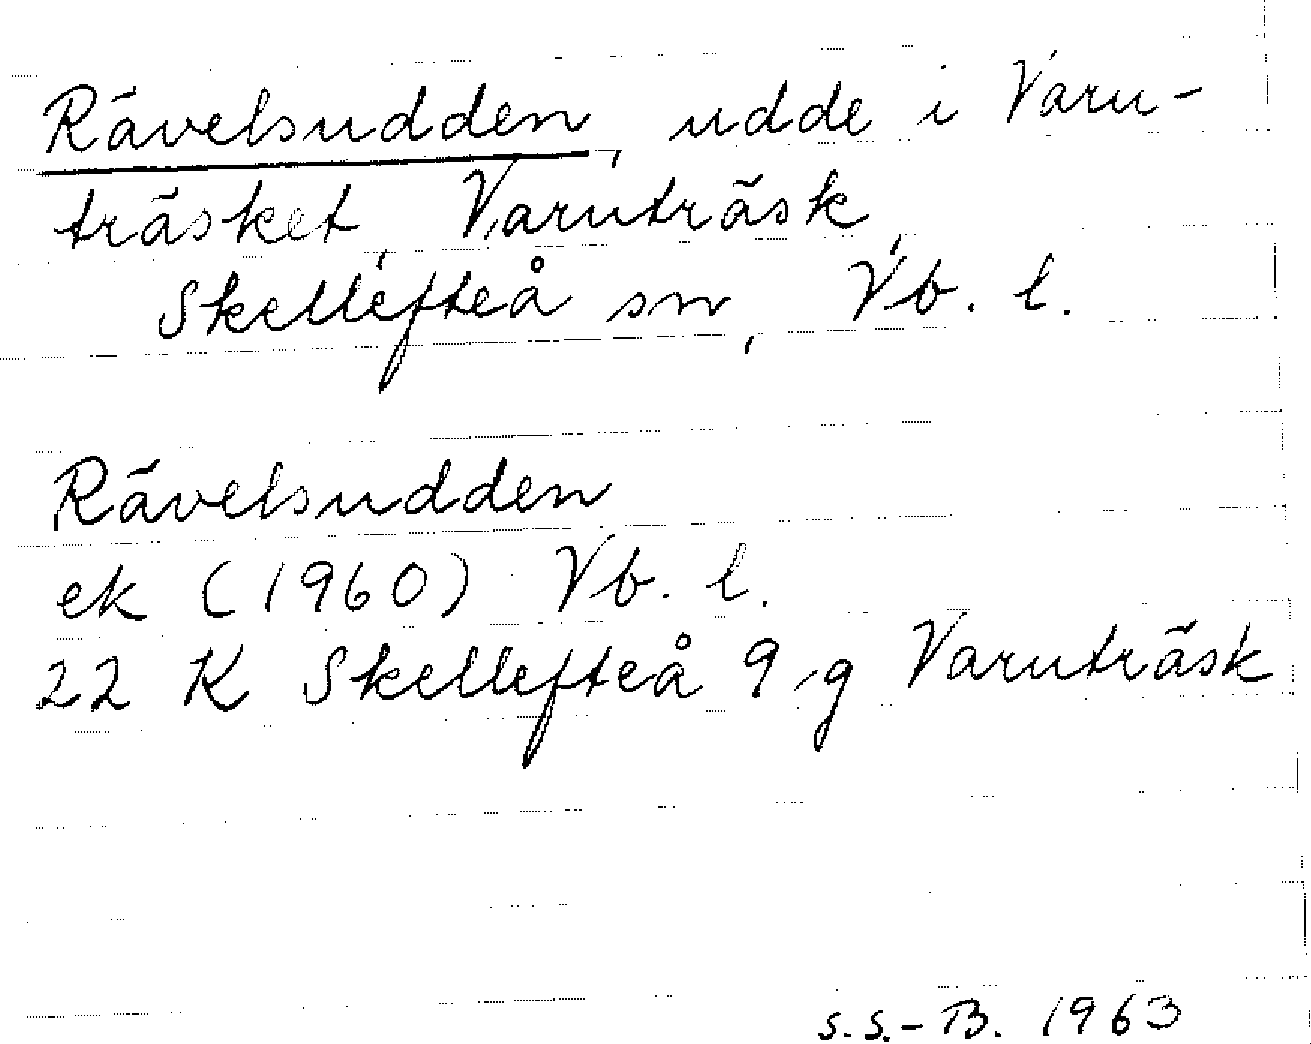 Rävelsudden, udde i Varu-
träsket, Varuträsk,
Skellefteå sn, Vb. l.
Rävelsudden
ek (1960) Vb. l.
22 K Skellefteå 9 g Varuträsk
S.S.-B. 1963